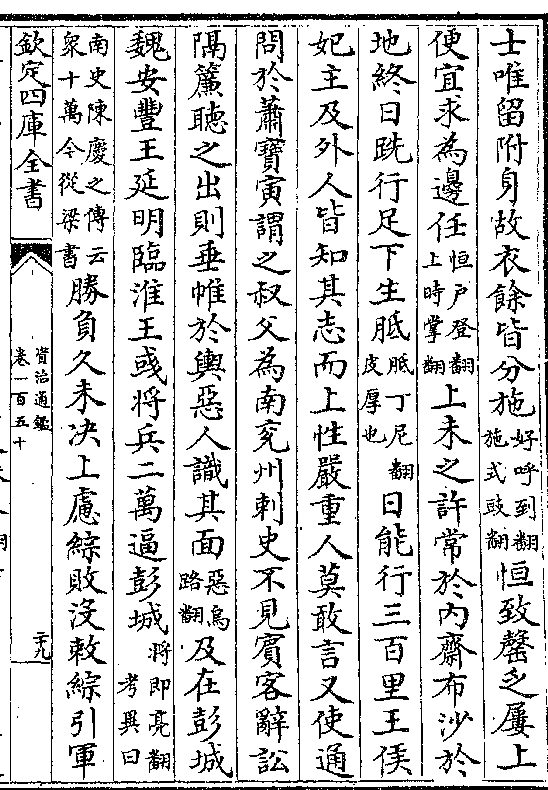 士唯留附身故衣餘皆分施好呼到翻施式豉翻恒致罄乏屢上
便宜求為邊任恒戶登翻上時掌翻上未之許常於内齋布沙於
地終日跣行足下生胝胝丁尼翻皮厚也日能行三百里王侯
妃主及外人皆知其志而上性嚴重人莫敢言又使通
問於蕭寶寅謂之叔父為南兖州刺史不見賓客辭訟
隔簾聽之出則垂帷於輿惡人識其面惡烏路翻及在彭城
魏安豐王延明臨淮王彧將兵二萬逼彭城將即亮翻考異曰
南史陳慶之傳云衆十萬今從梁書勝負久未决上慮綜敗没敕綜引軍
欽定四庫全書
資治通鑑
卷一百五十
二十九